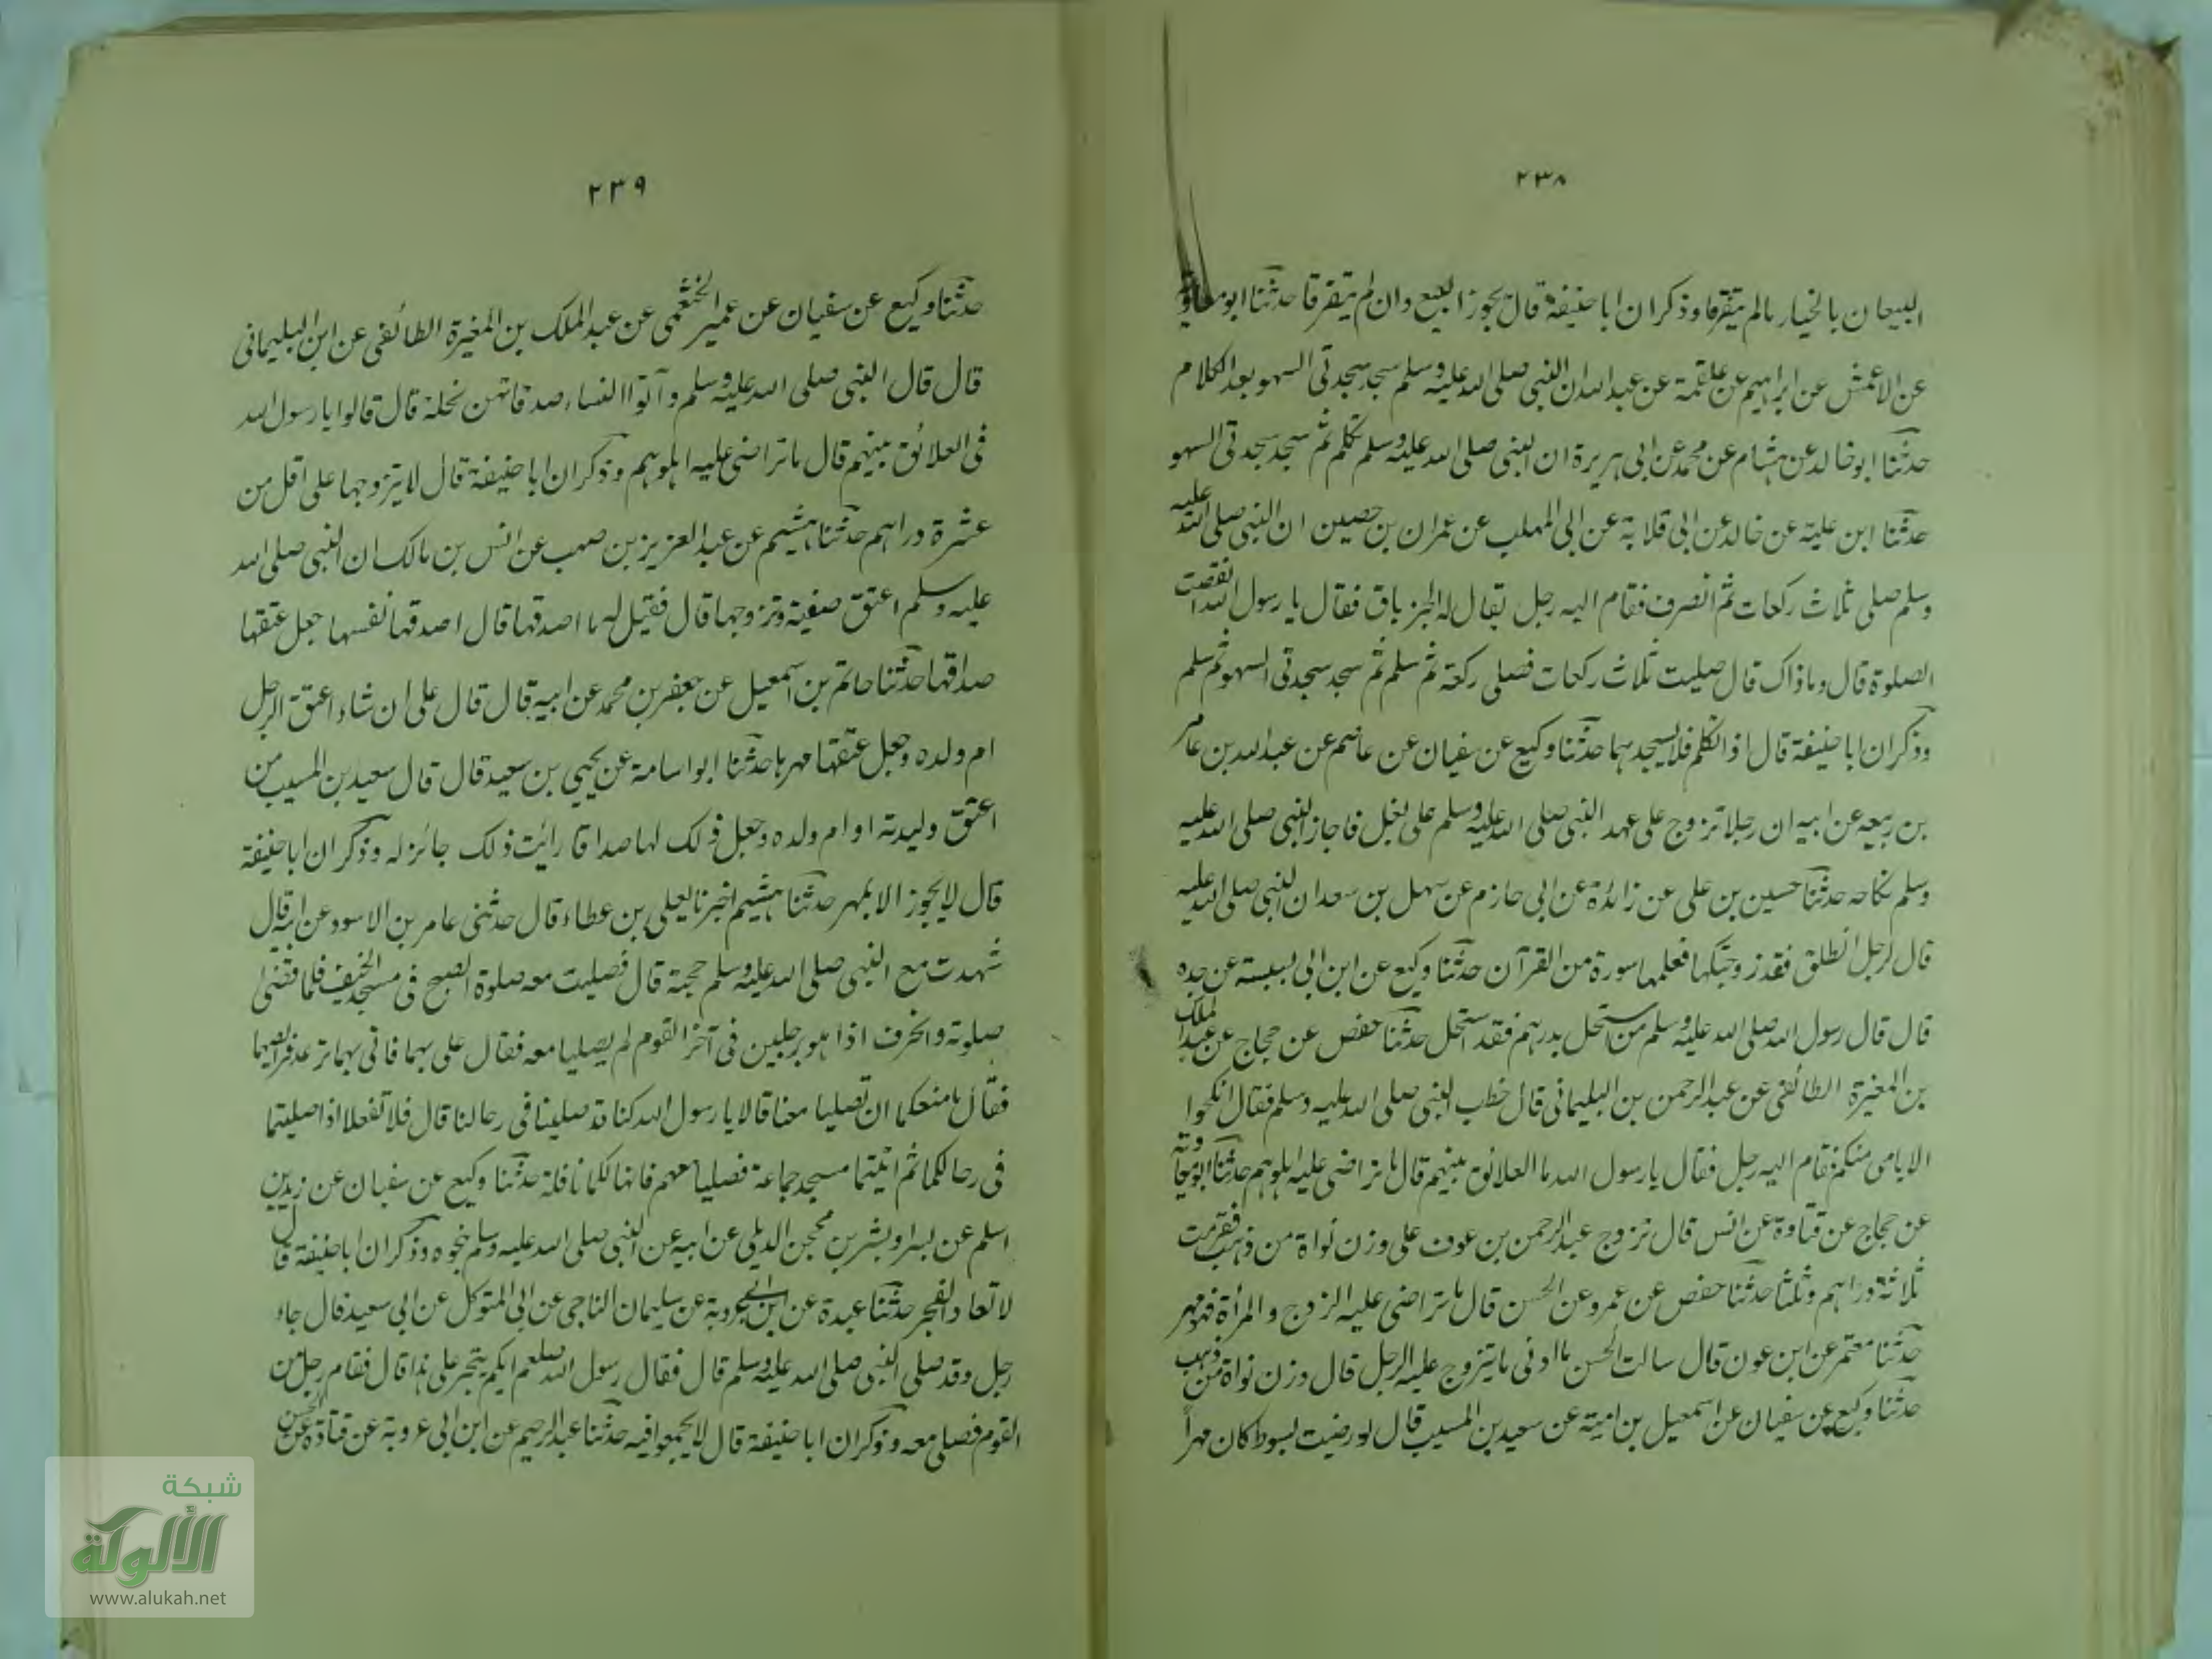 ٢٣٨
البيعان بالخيار مالم يتفرقا وذكر ان ابا حنيفة قال يجوز البيع وان لم يتفرقا حدثنا ابو معاوية
عن الاعمش عن ابراهيم عن علقمة عن عبد الله ان النبي صلى الله عليه وسلم سجد سجدتى السهو بعد الكلام
حدثنا ابو خالد عن هشام عن محمد عن ابى هريرة ان النبى صلى الله عليه وسلم تكلم ثم سجد سجدتى السهو
حدثنا ابن علية عن خالد عن ابى قلابة عن ابى المهلب عن عمران بن حصين ان النبى صلى الله عليه
وسلم صلى ثلاث ركعات ثم انصرف فقام اليه رجل يقال له الخرباق فقال يا رسول الله انقصت
الصلوة قال وماذاك قال صليت ثلاث ركعات فصلى ركعة ثم سلم ثم سجد سجدتى السهو ثم سلم
وذكر ان ابا حنيفة قال اذا تكلم فلا يسجدهما حدثنا وكيع عن سفيان عن عاصم عن عبد الله بن عامر
بن ربيعه عن ابيه ان رجلا تزوج على عهد النبى صلى الله عليه وسلم على نعل فاجاز النبى صلى الله عليه
وسلم نكاحه حدثنا حسين بن على عن زائدة عن ابى حازم عن سهل بن سعد ان النبى صلى الله عليه
قال لرجل انطلق فقد زوجتكها فعلمها سورة من القرآن حدثنا وكيع عن ابن ابى لبيبة عن جده
قال قال رسول الله صلى الله عليه وسلم من استحل بدرهم فقد استحل حدثنا حفص عن حجاج عن عبد الملك
بن المغيرة الطائفى عن عبد الرحمن بن البليمانى قال خطب النبى صلى الله عليه وسلم فقال انكحوا
الايامى منكم فقام اليه رجل فقال يا رسول الله ما العلائق بينهم قال ما تراضى عليه اهلوهم حدثنا ابو معاوية
عن حجاج عن قتادة عن انس قال تزوج عبد الرحمن بن عوف على وزن نواة من ذهب فقومت
ثلاثة دراهم وثلثا حدثنا حفص عن عمرو عن الحسن قال ما تراضى عليه الزوج والمرأة فهو مهر
حدثنا معتمر عن ابن عون قال سالت الحسن ما ادنى ما يتزوج عليه الرجل قال وزن نواة من ذهب
حدثنا وكيع عن سفيان عن اسمعيل بن امية عن سعيد بن المسيب قال لو رضيت بسوط كان مهراً
٢٣٩
حدثنا وكيع عن سفيان عن عمير الخثعمى عن عبد الملك بن المغيرة الطائفى عن ابن البليمانى
قال قال النبى صلى الله عليه وسلم وآتوا النساء صدقاتهن نحلة قال قالوا يا رسول الله
فى العلائق بينهم قال ما تراضى عليه اهلوهم وذكر ان ابا حنيفة قال لا يتزوجها على اقل من
عشرة دراهم حدثنا هشيم عن عبد العزيز بن صهيب عن انس بن مالك ان النبى صلى الله
عليه وسلم اعتق صفية وتزوجها قال فقيل له ما اصدقها قال اصدقها نفسها جعل عتقها
صداقها حدثنا حاتم بن اسمعيل عن جعفر بن محمد عن ابيه قال قال على ان شاء اعتق الرجل
ام ولده وجعل عتقها مهرها حدثنا ابو اسامة عن يحيى بن سعيد قال قال سعيد بن المسيب من
اعتق وليدته او ام ولده وجعل ذلك لها صداقا رايت ذلك جائزله وذكر ان ابا حنيفة
قال لا يجوز الا بمهر حدثنا هشيم اخبرنا يعلى بن عطاء قال حدثنى عامر بن الاسود عن ابيه قال
شهدت مع النبى صلى الله عليه وسلم حجة قال فصليت معه صلوة الصبح فى مسجد الخيف فلما قضى
صلوته وانحرف اذا هو برجلين فى آخر القوم لم يصليا معه فقال على بهما فاتى بهما ترعد فرائصهما
فقال ما منعكما ان تصليا معنا قالا يا رسول الله كنا قد صلينا فى رحالنا قال فلا تفعلا اذا صليتما
فى رحالكما ثم اتيتما مسجد جماعة فصليا معهم فانها لكما نافلة حدثنا وكيع عن سفيان عن زيد بن
اسلم عن بسر او بشر بن محجن الديلى عن ابيه عن النبى صلى الله عليه وسلم بنحوه وذكر ان ابا حنيفة قال
لا تعاد الفجر حدثنا عبدة عن ابن ابى عروبة عن سليمان الناجى عن ابى المتوكل عن ابى سعيد قال جاء
رجل وقد صلى النبى صلى الله عليه وسلم قال فقال رسول الله صلعم ايكم يتجر على هذا قال فقام رجل من
القوم فصلى معه وذكر ان ابا حنيفة قال لا يجمعوا فيه حدثنا عبد الرحيم عن ابن ابى عروبة عن قتادة عن الحسن
شبكة
الألوكة
www.alukah.net